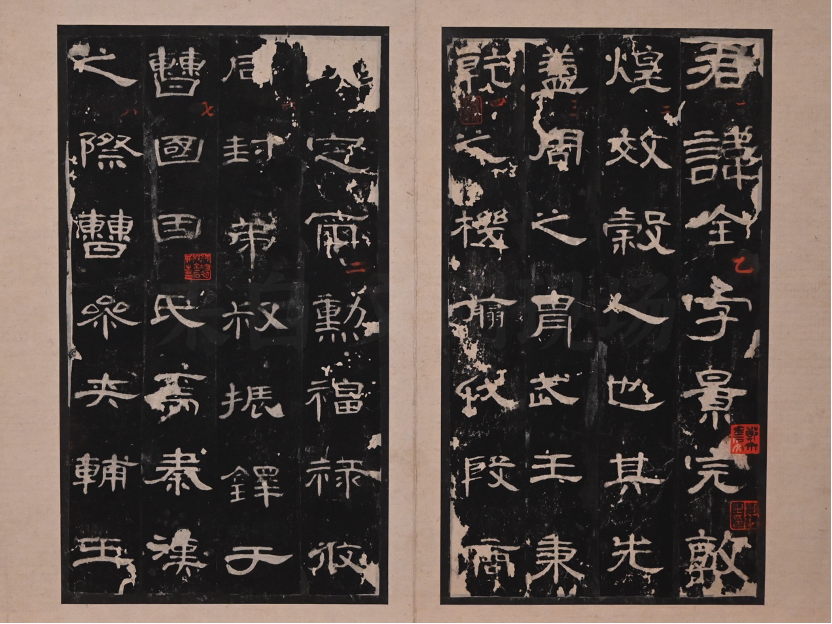 君諱全字景完敦
煌效穀人也其先
蓋周之胄武王秉
乾之機翦伐殷商
定爾勳福祿攸
同封弟叔振鐸于
曹國因氏焉秦漢
之際曹參夾輔王